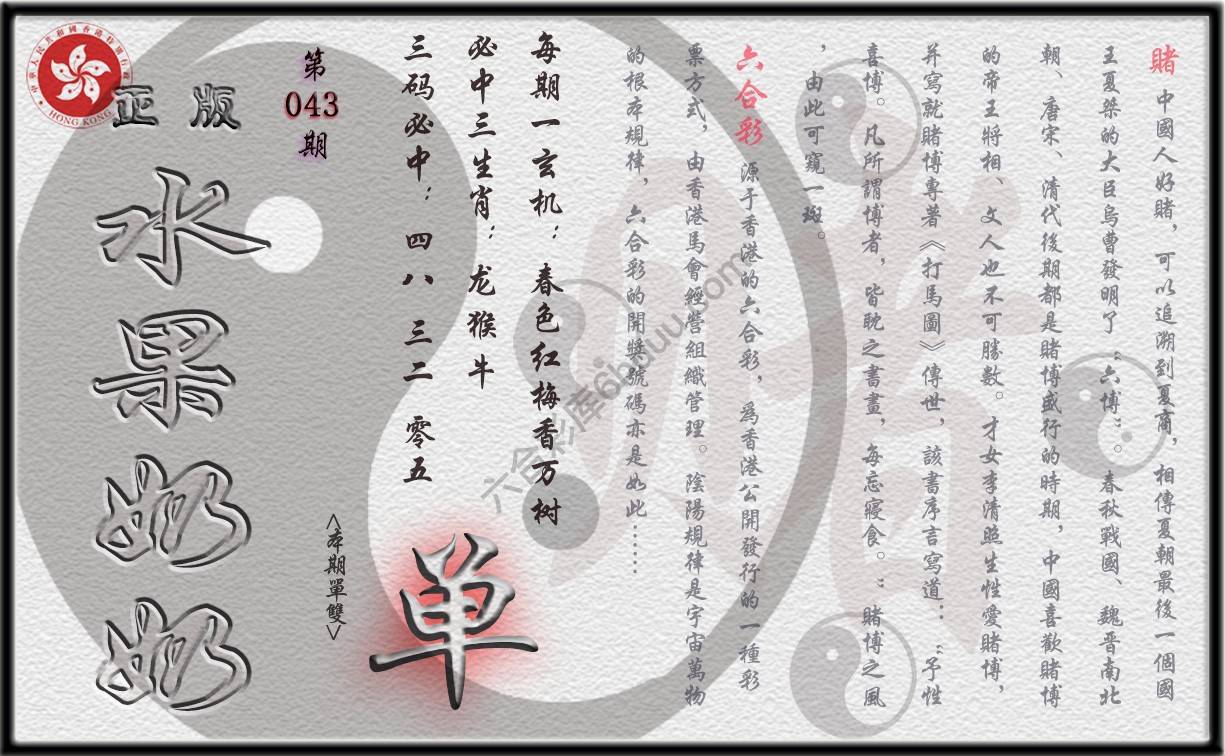 賭 中國人好賭，可以追溯到夏商，相傳夏朝最後一個國
王夏桀的大臣烏曹發明了“六博”。春秋戰國、魏晉南北
朝、唐宋、清代後期都是賭博盛行的時期，中國喜歡賭博
的帝王將相、文人也不可勝數。才女李清照生性愛賭博，
并寫就賭博專著《打馬圖》傳世，該書序言寫道：“予性
喜博。凡所謂博者，皆耽之書畫，每忘寢食。”賭博之風
，由此可窺一斑。
六合彩 源于香港的六合彩，爲香港公開發行的一種彩
票方式，由香港馬會經營組織管理。陰陽規律是宇宙萬物
的根本規律，六合彩的開獎號碼亦是如此……
每期一玄机：春色红梅香万树
必中三生肖：龙猴牛
三码必中：四八 三二 零五
单
<本期單雙>
第
043
期
正版
水果奶奶
中華人民共和國香港特別行政區
HONG KONG
六合彩库6hduu.com